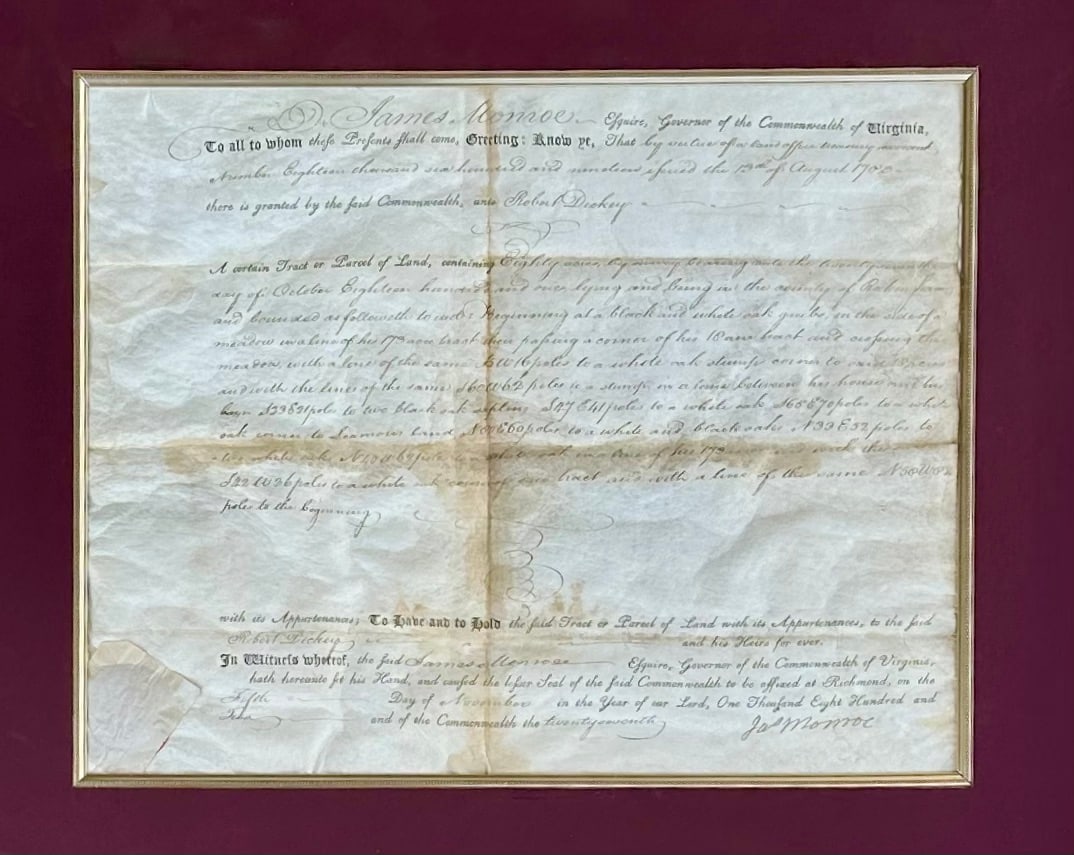 James Monroe Esquire, Governor of the Commonwealth of Virginia,
To all to whom these Presents shall come, Greeting: Know ye, That by virtue of a land office treasury warrant
Number Eighteen thousand six hundred and nineteen issued the 13th of August
there is granted by the said Commonwealth, unto Robert Dickey
A certain Tract or Parcel of Land, containing Eighty acres, by survey bearing date the
day of October Eighteen hundred and one lying and being in the county of
and bounded as followeth to wit: Beginning at a black and white oak in the side of a
meadow in a line of his 173 acre tract then passing a corner of his acre tract and crossing the
meadow, with a line of the same W 16 poles to a white oak stump corner to said
and with the lines of the same S60W62 poles to a stump in a lane between his house and his
barn poles to two black oak saplins S47E41 poles to a white oak S65E70 poles to a white
oak corner to land poles to a white and black oaks N33E52 poles to
two white oaks poles to a white oak in a line of his 173 and with the
S22W36 poles to a white oak corner of tract and with a line of the same
poles to the beginning
with its Appurtenances; To Have and to Hold the said Tract or Parcel of Land with its Appurtenances, to the said
Robert Dickey and his Heirs for ever.
In Witness whereof, the said James Monroe Esquire, Governor of the Commonwealth of Virginia,
hath hereunto set his Hand, and caused the lesser Seal of the said Commonwealth to be affixed at Richmond, on the
Fifth Day of November in the Year of our Lord, One Thousand Eight Hundred and
and of the Commonwealth the twentyseventh
Jas Monroe